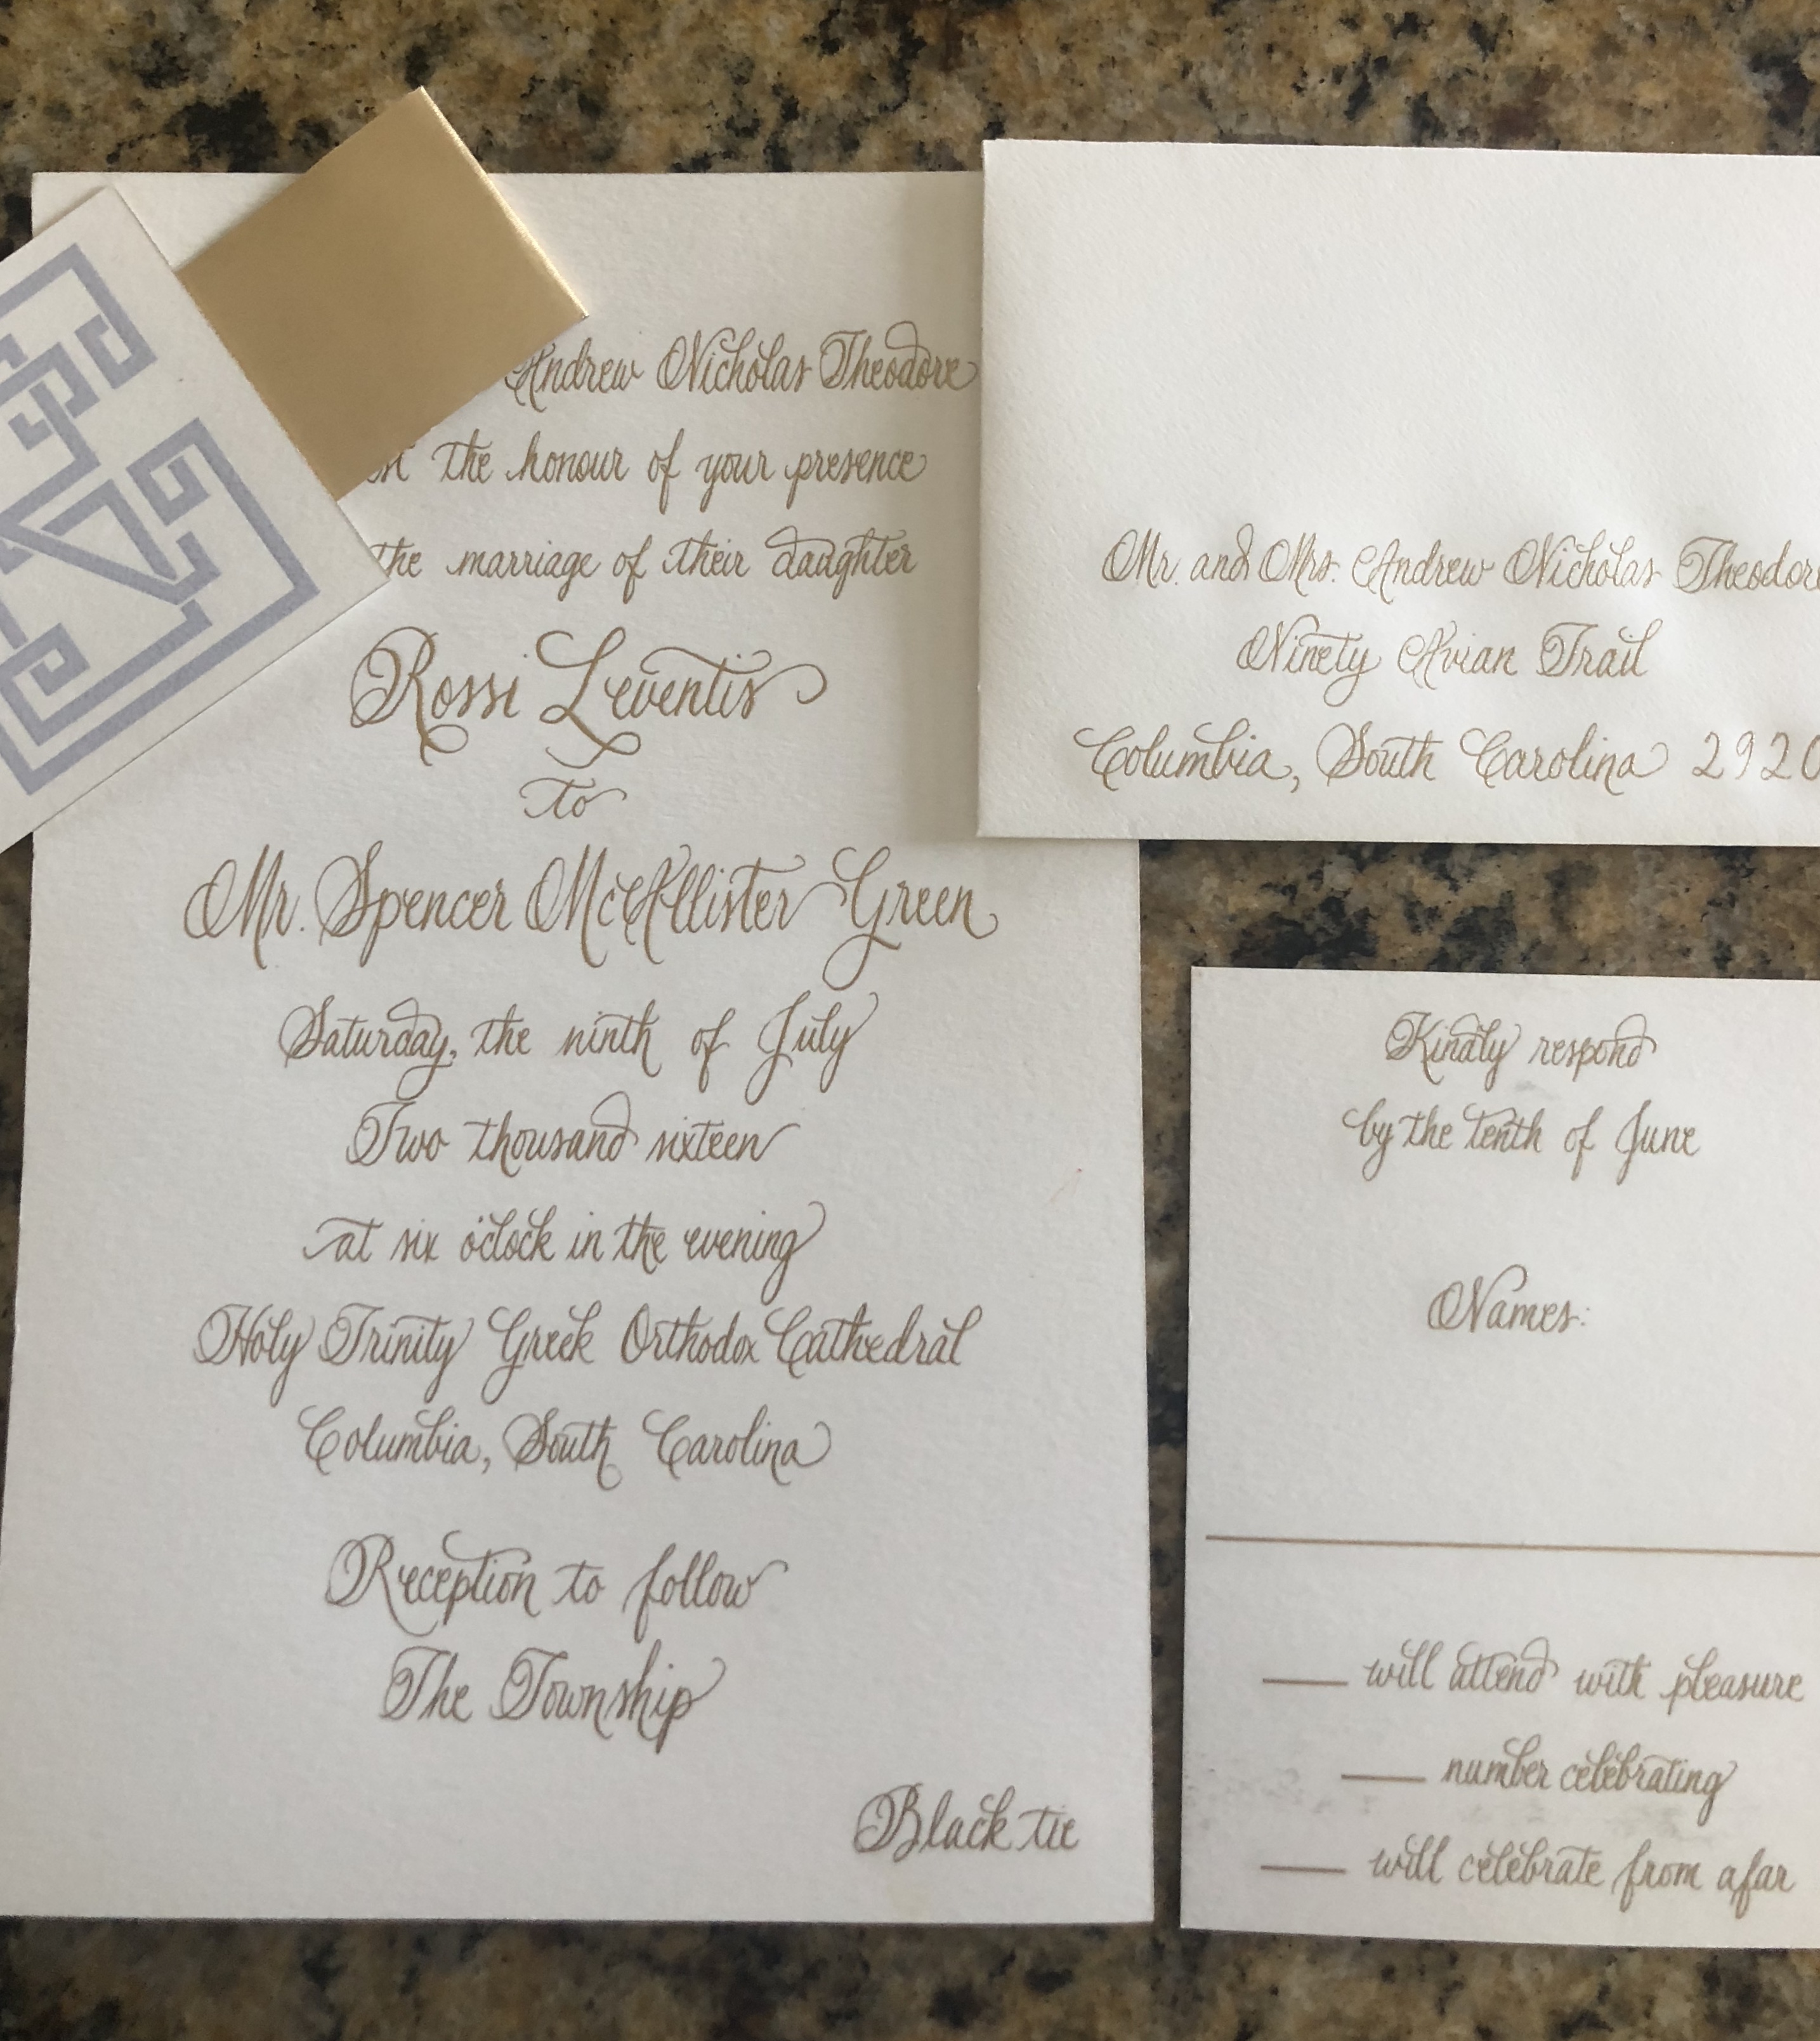 Andrew Nicholas Theodore
the honour of your presence
the marriage of their daughter
Rossi Leventis
to
Mr. Spencer McAllister Green
Saturday, the ninth of July
Two thousand sixteen
at six o'clock in the evening
Holy Trinity Greek Orthodox Cathedral
Columbia, South Carolina
Reception to follow
The Township
Black tie
Mr. and Mrs. Andrew Nicholas Theodore
Ninety Avian Trail
Columbia, South Carolina 2920
Kindly respond
by the tenth of June
Names:
will attend with pleasure
number celebrating
will celebrate from afar